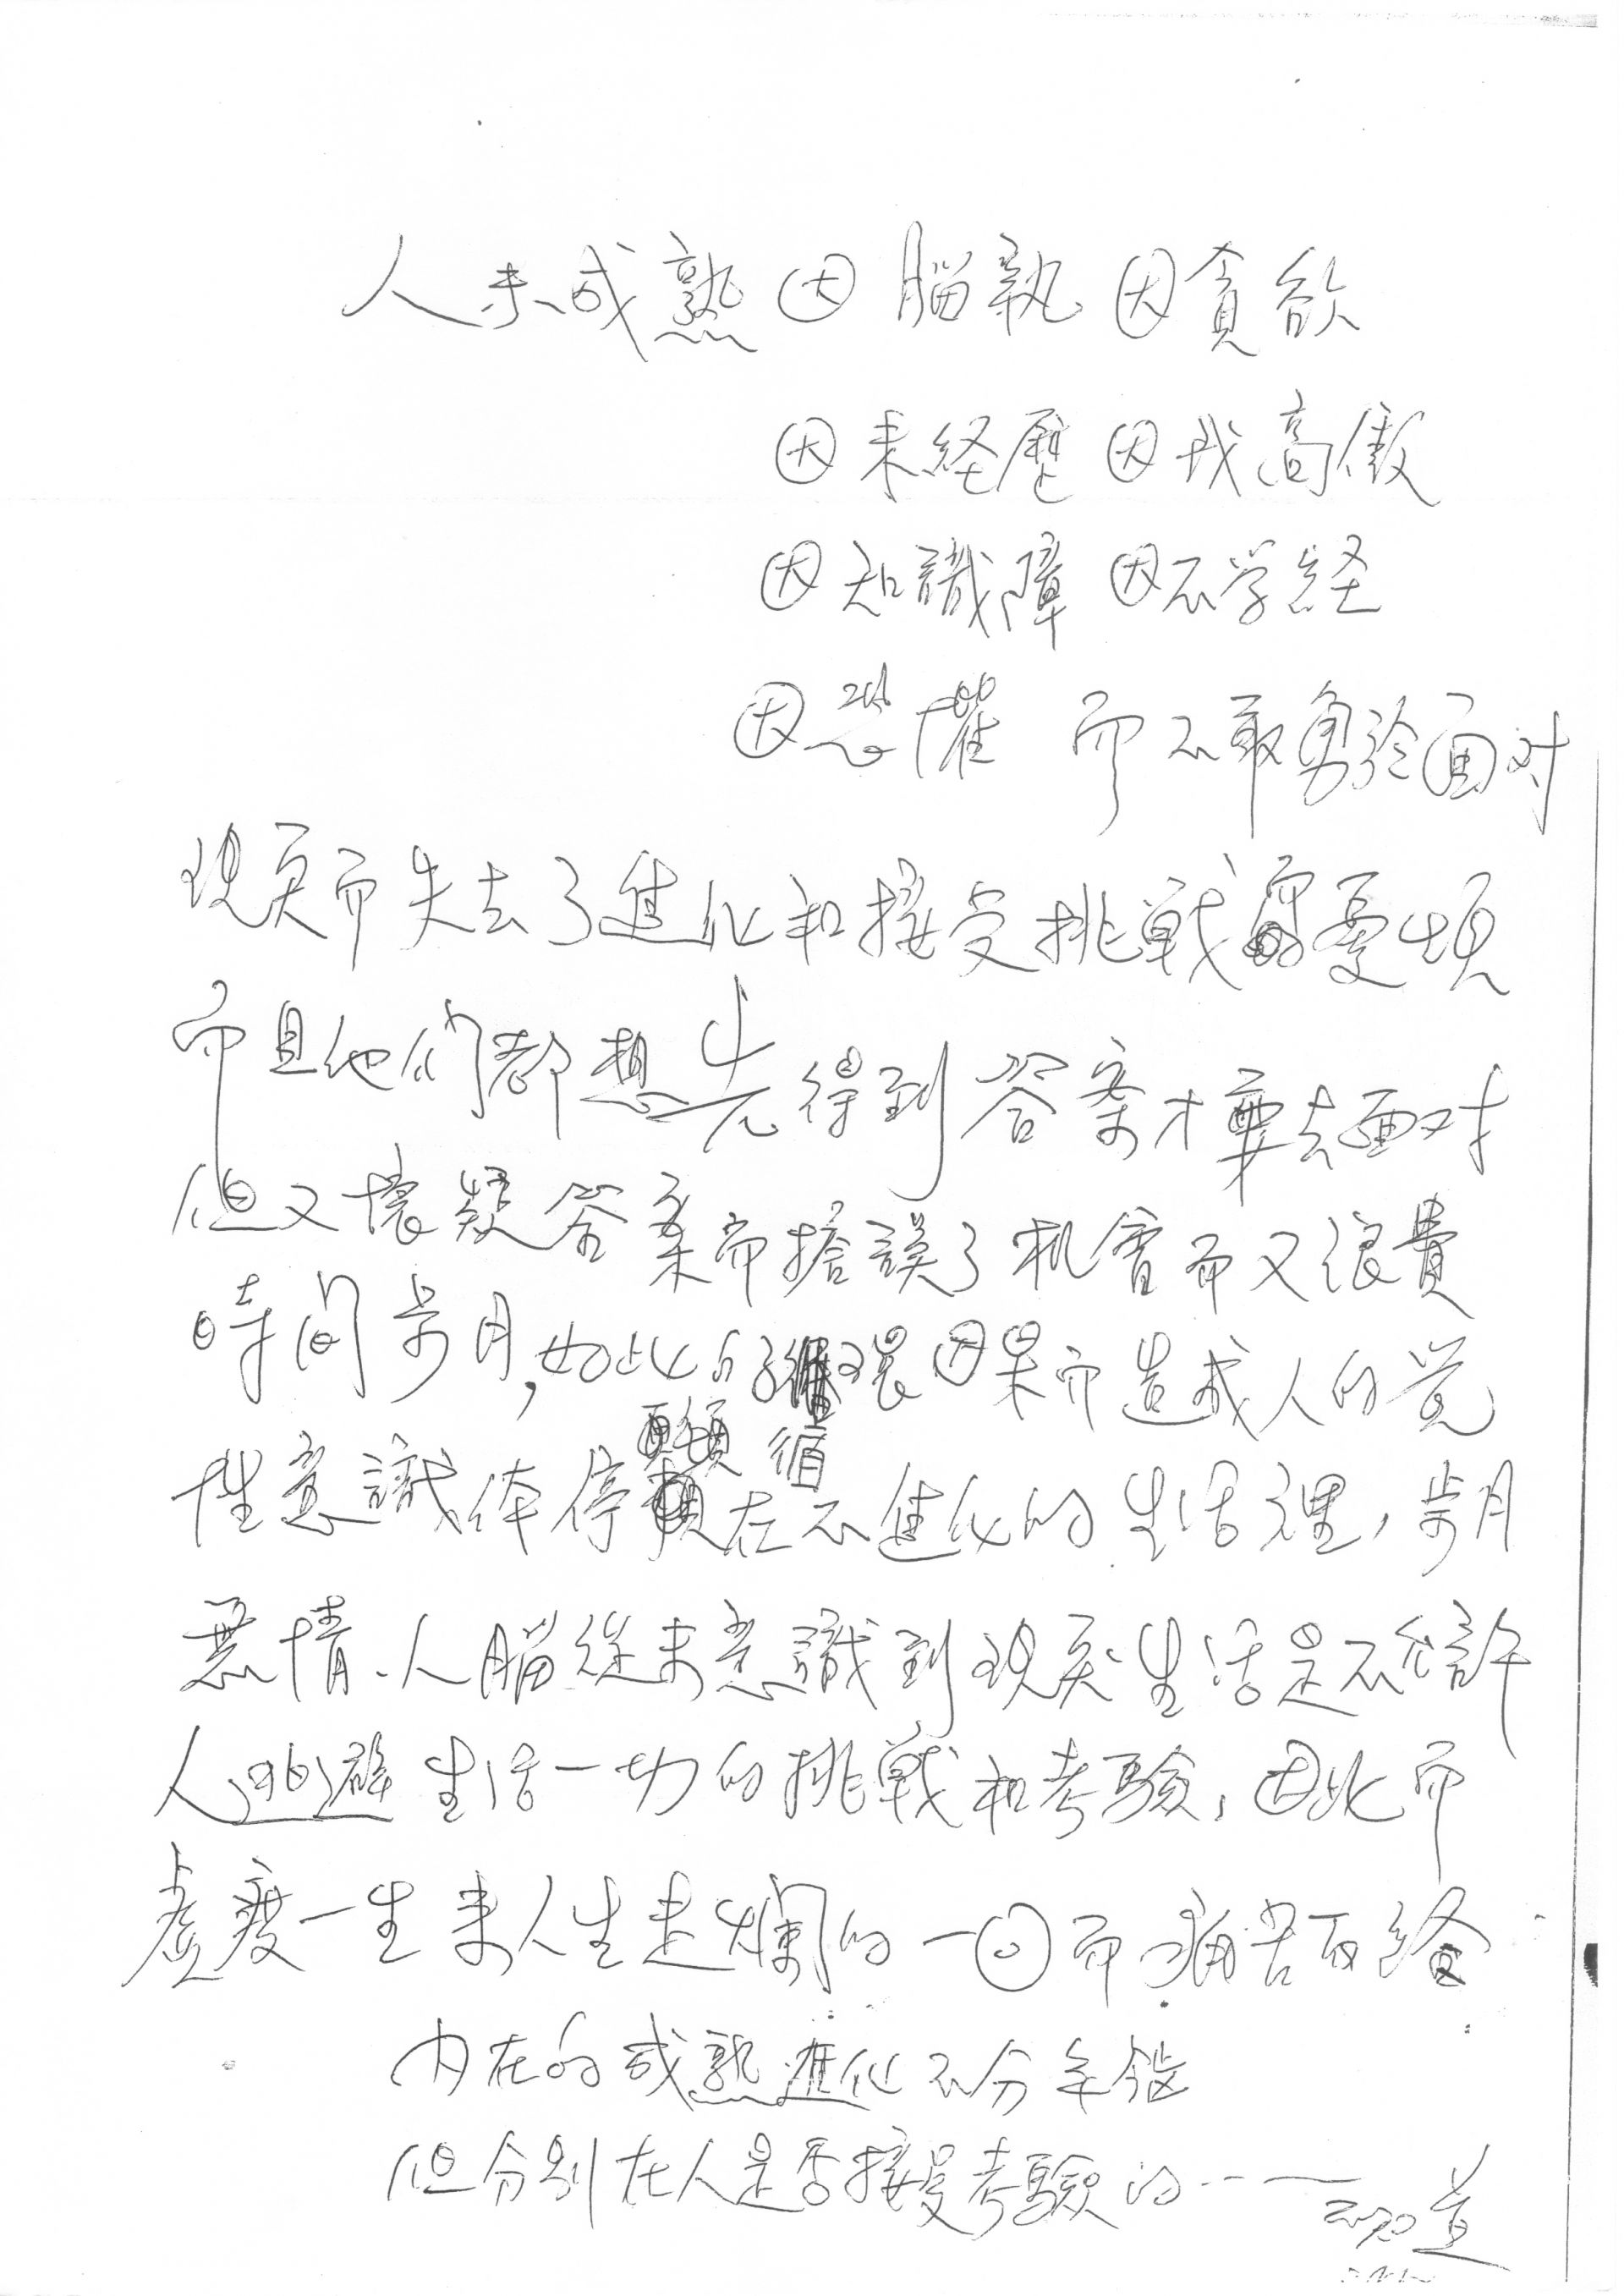 人未成熟因腦執因貪欲
因未経歷因我高傲
因知識障因不学経
因恐懼而不敢勇於面对
現実而失去了進化和接受挑戰
而且他们都想先得到答案才要去面对
但又懷疑答案而捨誤了机會而又浪費
時间歲月,如此的循環因果而造成人的覺
性意識体停頓在不進化的生活裡,歲月
無情、人腦從未意識到現実生活是不允許
人逃避生活一切的挑戰和考驗,因此而
虛度一生来人生走爛的一回而痛苦百经
内在的成熟進化不分年龄
但分别在人是否接受考驗的